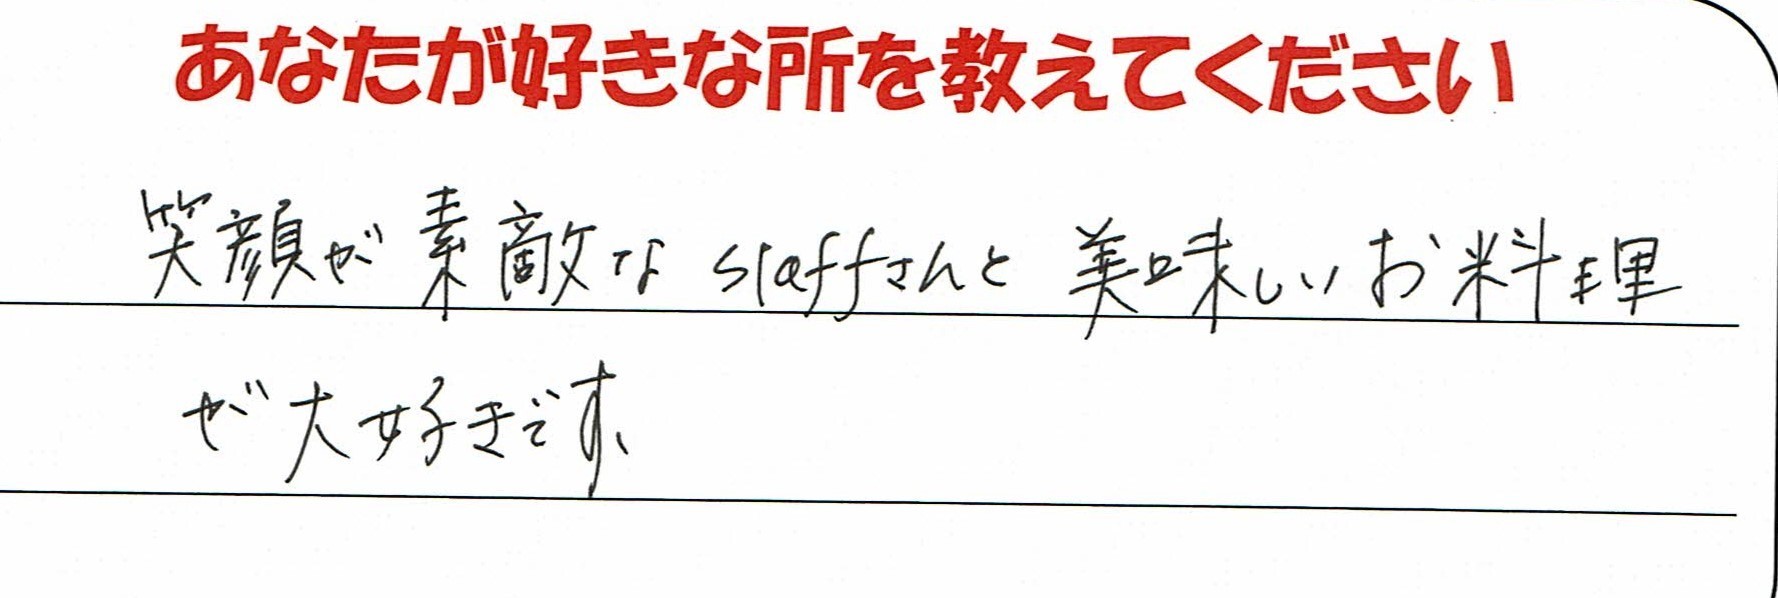 あなたが好きな所を教えてください
笑顔が素敵なstaffさんと美味しいお料理
が大好きです、